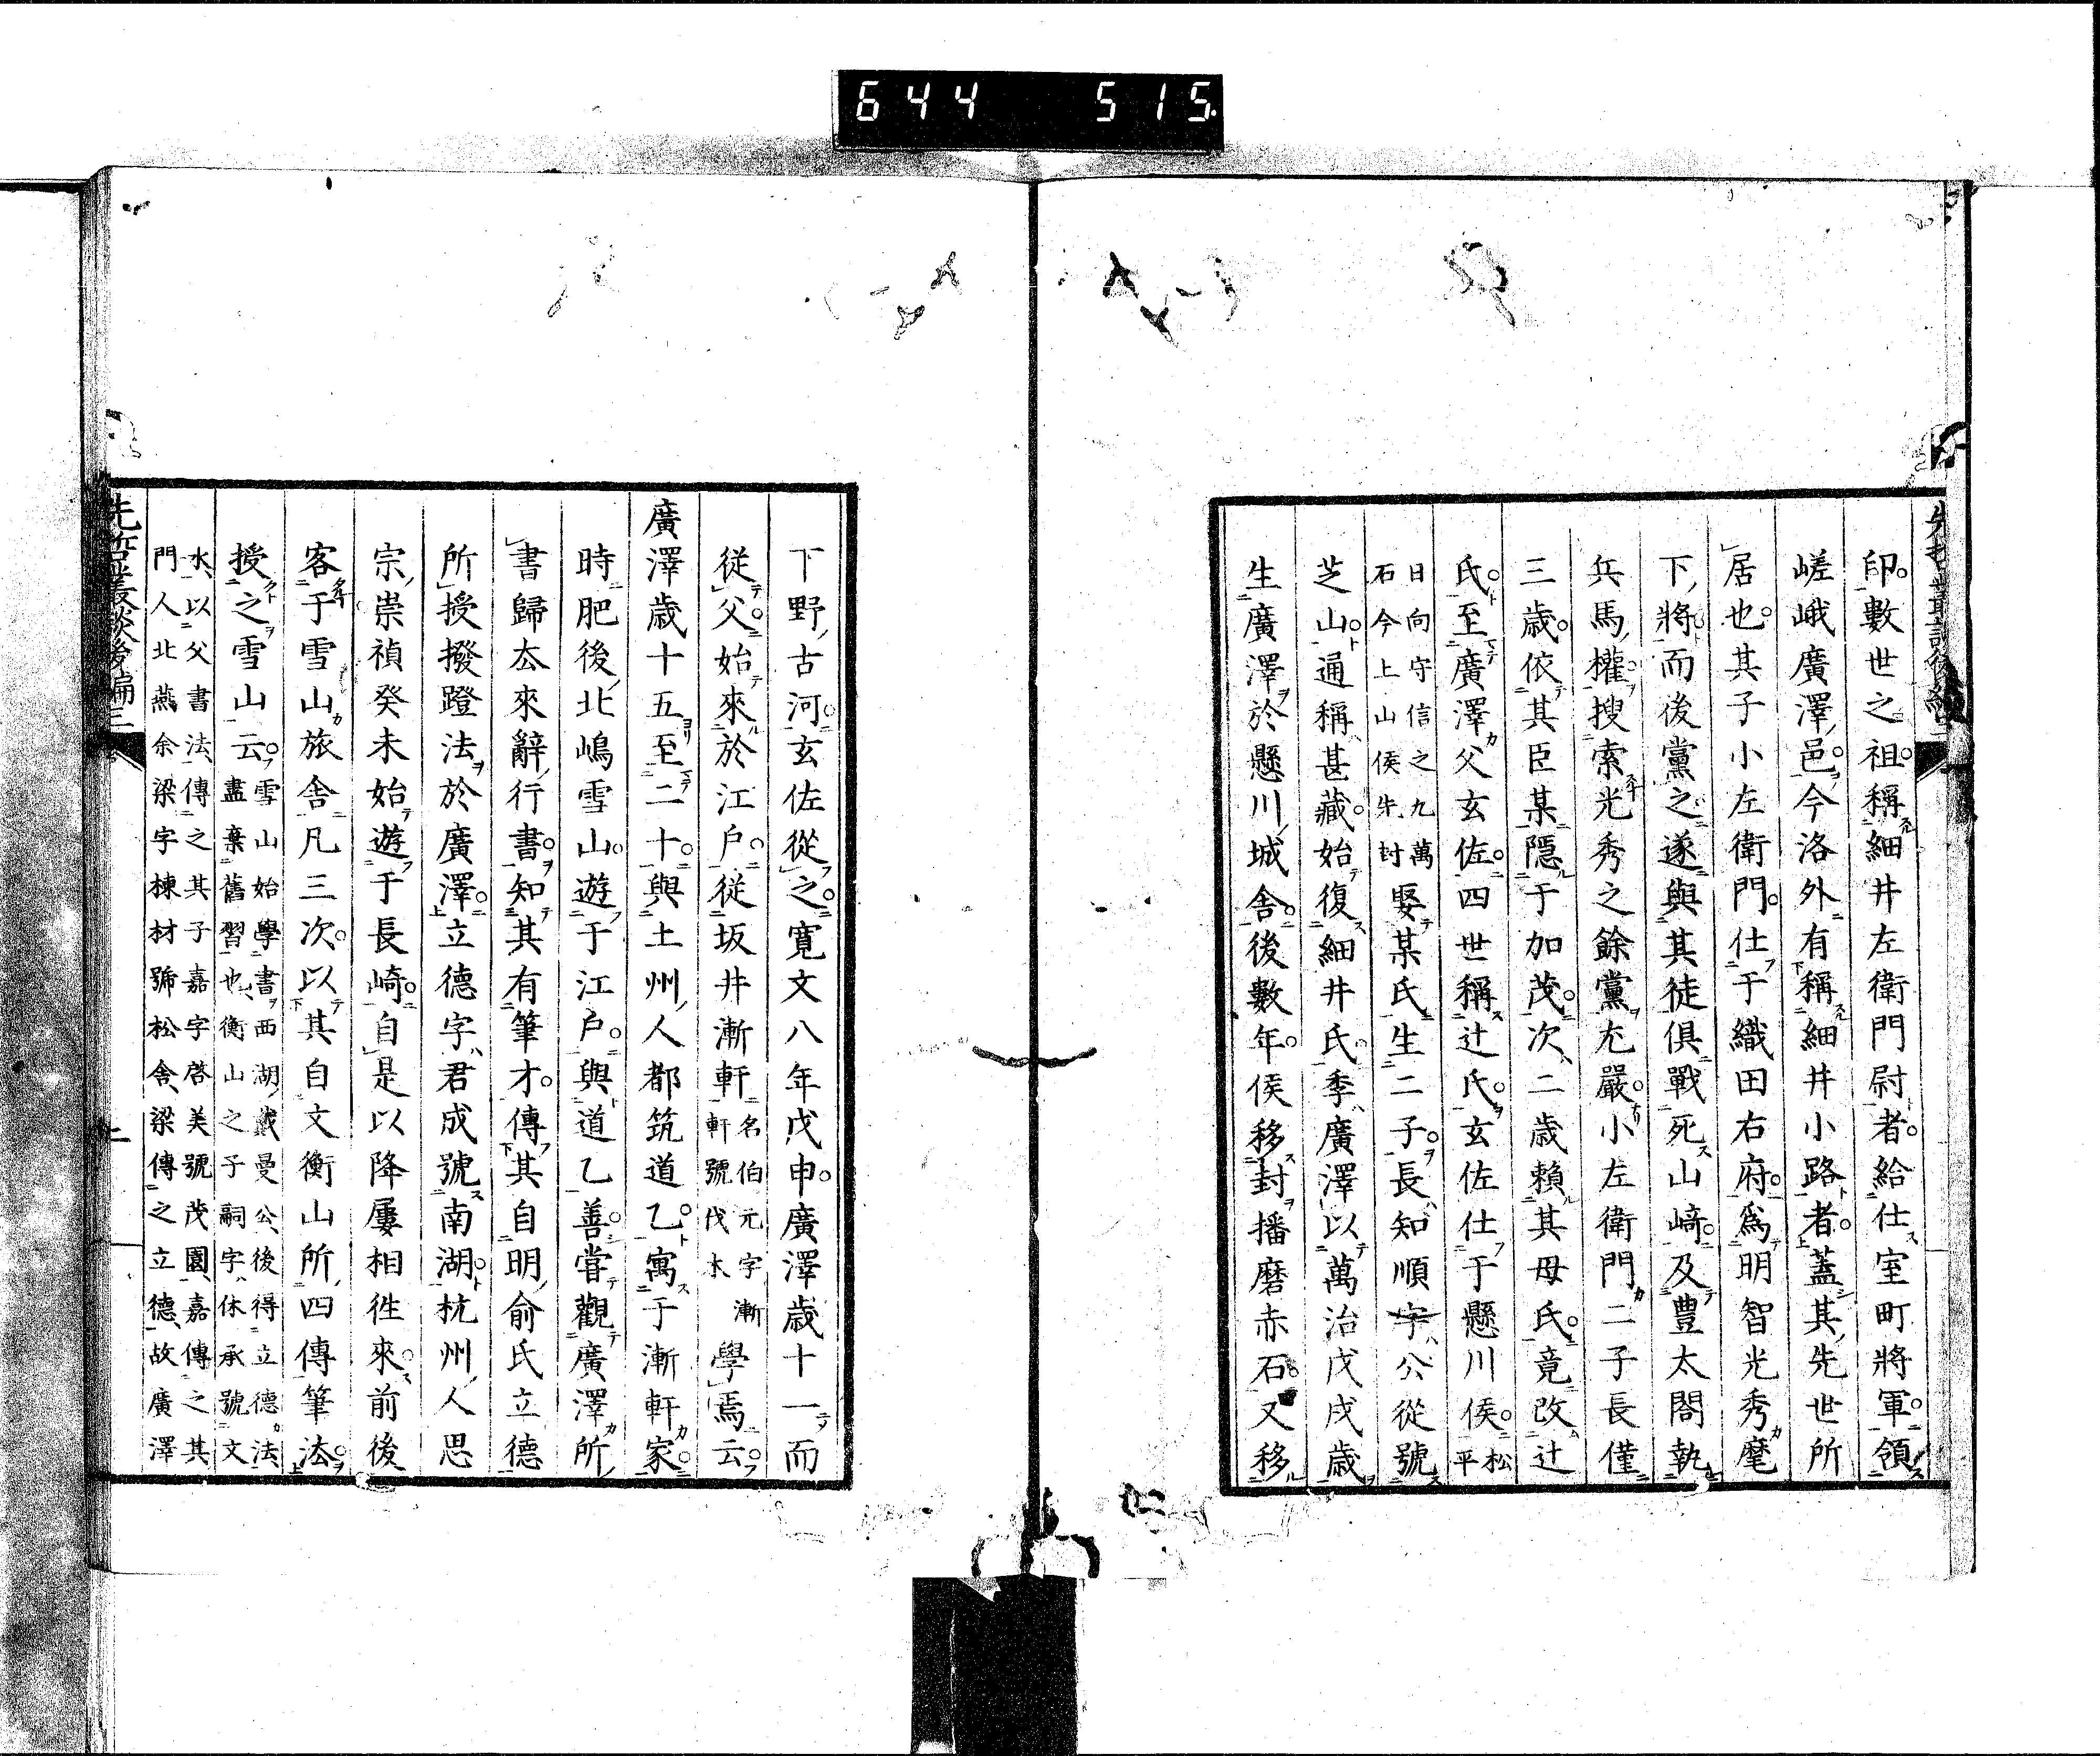 644 515
印數世之祖稱細井左衛門尉者給仕室町將軍領
嵯峨廣澤邑今洛外有稱細井小路者蓋其先世所
居也其子小左衛門仕于織田右府爲明智光秀麾
下將而後黨之遂與其徒俱戰死山﨑及豐太閤執
兵馬權搜索光秀之餘黨尤嚴小左衛門二子長僅
三歳依其臣某隱于加茂次二歳賴其母氏竟改辻
氏至廣澤父玄佐四世稱辻氏玄佐仕于懸川侯松平
日向守信之九萬石今上山侯先封娶某氏生二子長知順字公從號
芝山通稱甚藏始復細井氏季廣澤以萬治戊戌歳
生廣澤於懸川城舍後數年侯移封播磨赤石又移
下野古河玄佐從之寬文八年戊申廣澤歳十一而
從父始來於江戸從坂井漸軒名伯元字漸軒號伐木學焉云
廣澤歳十五至二十與土州人都筑道乙寓于漸軒家
時肥後北嶋雪山遊于江戸與道乙善嘗觀廣澤所
書歸去來辭行書知其有筆才傳其自明俞氏立德
所授撥蹬法於廣澤立德字君成號南湖杭州人思
宗崇禎癸未始遊于長崎自是以降屢相徃來前後
客于雪山旅舎凡三次以其自文衡山所四傳筆法
授之雪山云雪山始學書西湖戴曼公後得立德法盡棄舊習也衡山之子嗣字休承號文
水以父書法傳之其子嘉字啓美號茂園嘉傳之其門人北燕余梁字棟材號松舍梁傳之立德故廣澤
先哲叢談後編三